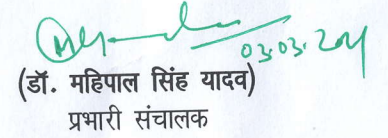 03.03.2021
(डॉ. महिपाल सिंह यादव)
प्रभारी संचालक